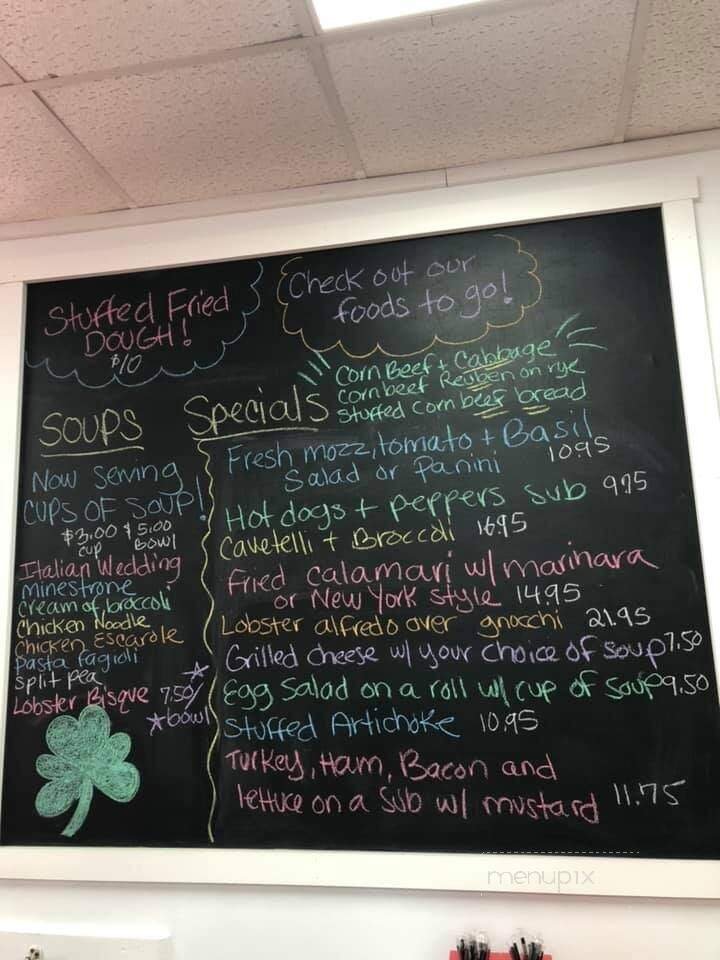 Stuffed Fried
DOUGH!
$10
Check out our
foods to go!
Corn Beef + Cabbage
Corn beef Reuben on rye
Stuffed corn beef bread
SOUPS
Specials
Now serving
CUPS OF SOUP!
$3.00 $5.00
cup BOWl
Italian Wedding
minestrone
cream of broccoli
Chicken Noodle
Chicken Escarole
Pasta fagioli
Split pea
Lobster Bisque 7.50/
bowl
Fresh mozz, tomato + Basil
Salad or Panini 1095
Hot dogs + peppers sub 975
Cavetelli + Broccoli 16.95
Fried calamari w/ marinara
or New York style 1495
Lobster alfredo over gnocchi 21.95
Grilled cheese w/ your choice of soup 7.50
Egg Salad on a roll w/ cup of soup 9.50
Stuffed Artichoke 10.95
Turkey, Ham, Bacon and
lettuce on a Sub w/ mustard 11.75
menupix